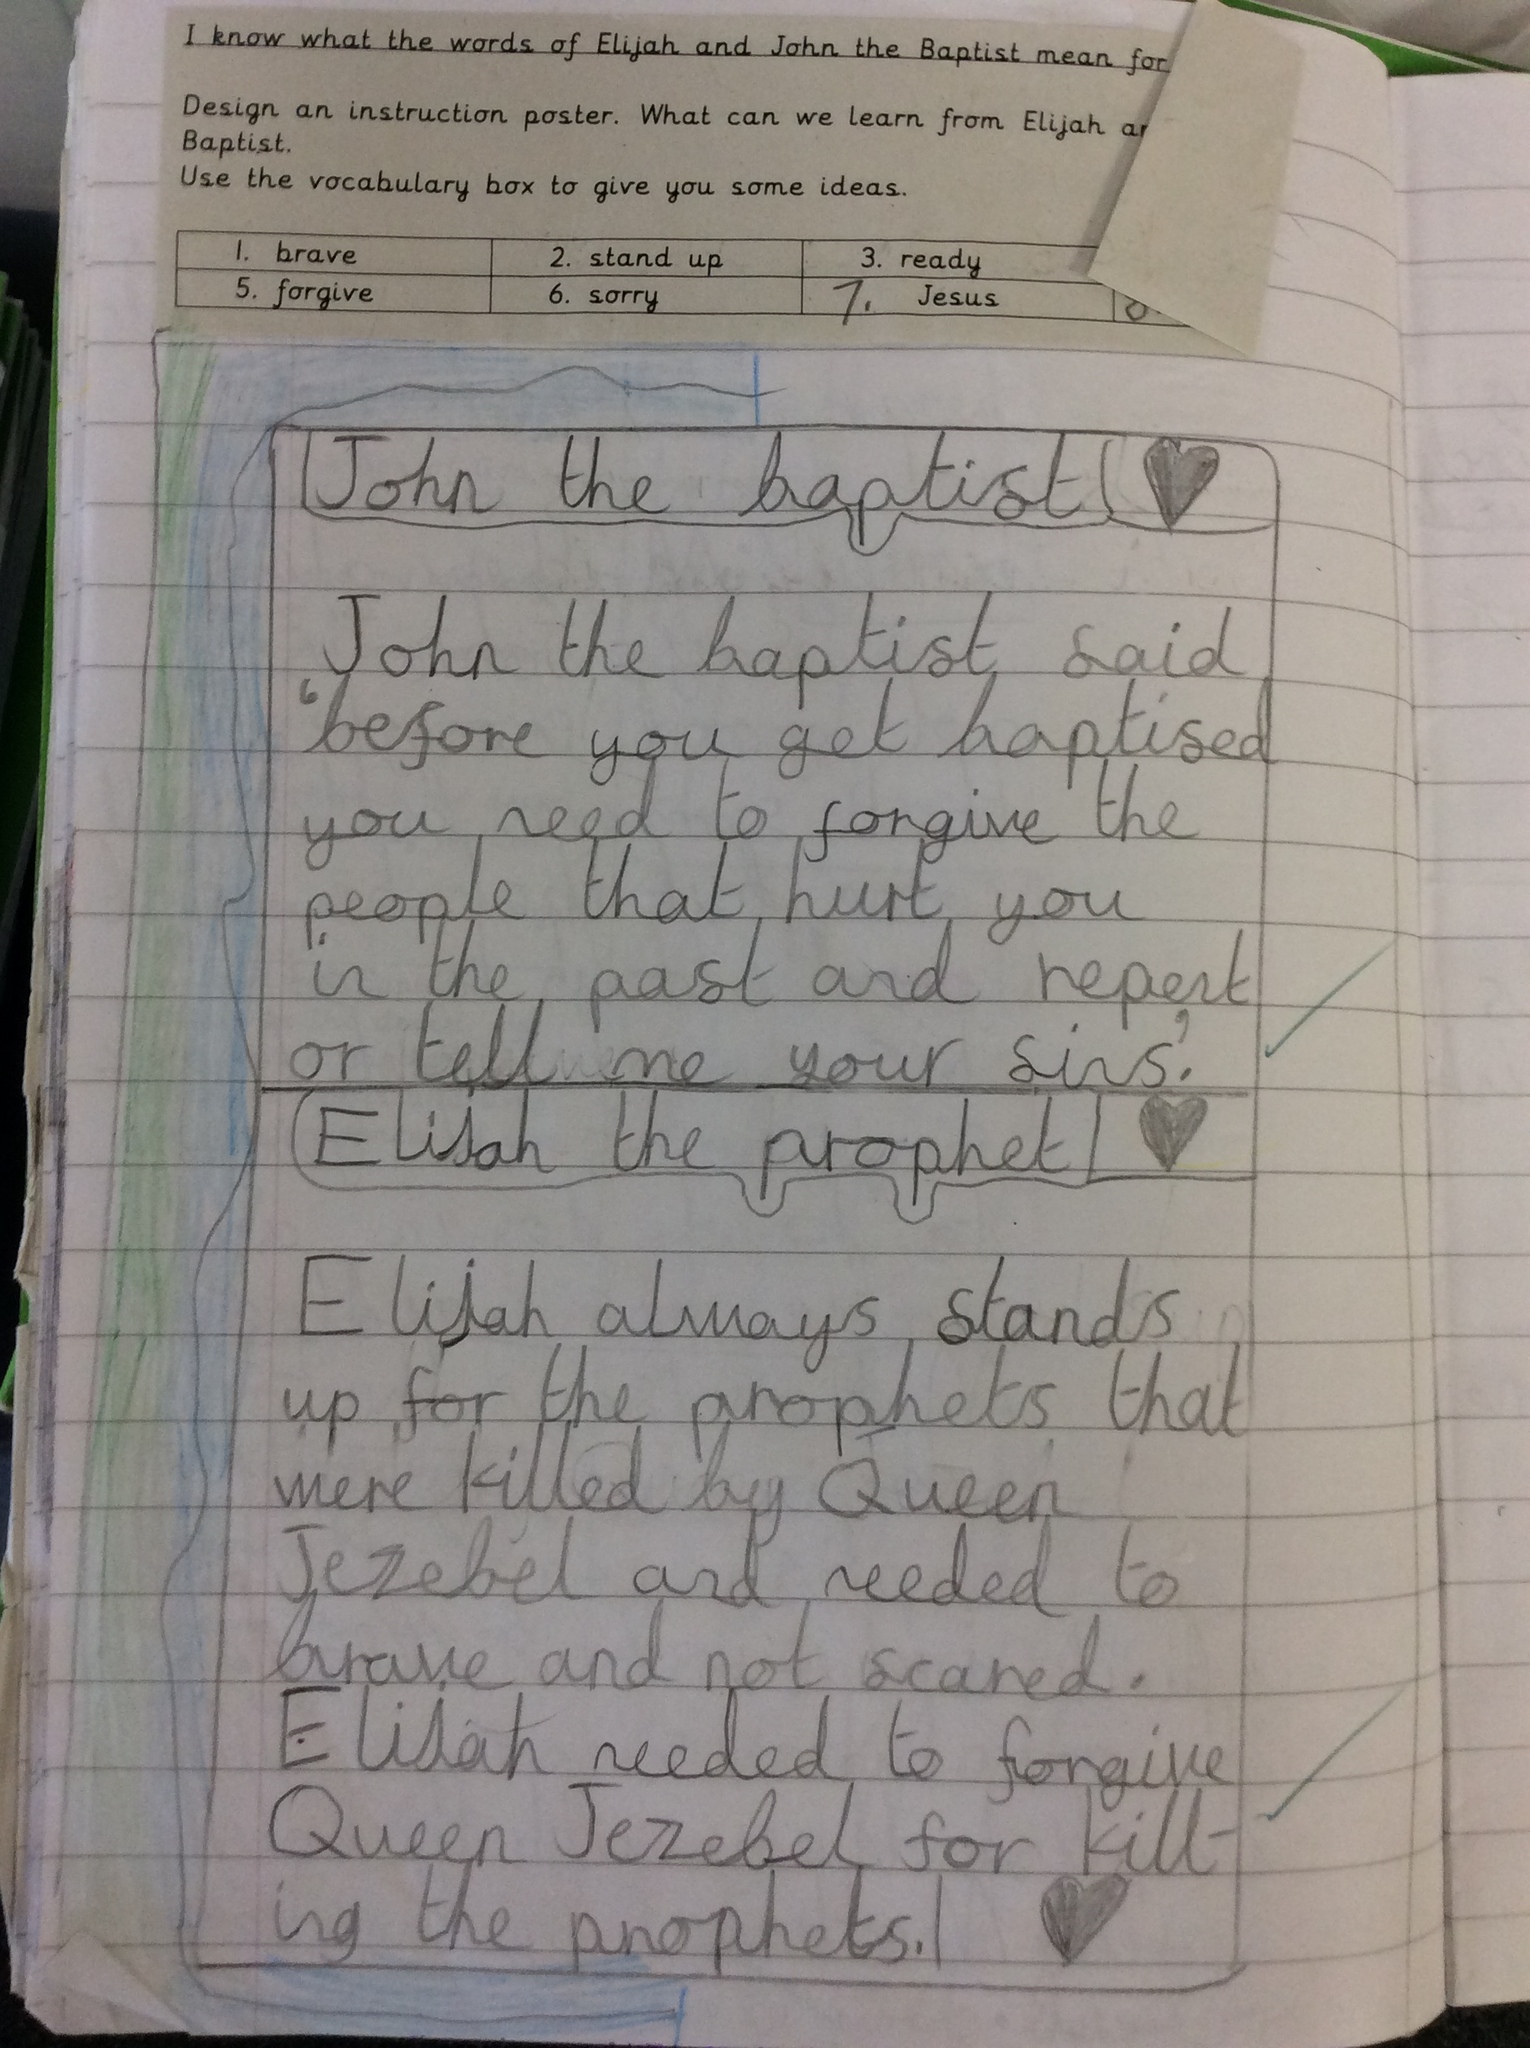 I know what the words of Elijah and John the Baptist mean for
Design an instruction poster. What can we learn from Elijah
Baptist.
Use the vocabulary box to give you some ideas.
1. brave 2. stand up 3. ready
5. forgive 6. sorry 7. Jesus
John the baptist
John the baptist said
'before you get baptised
you need to forgive the
people that hurt you
in the past and repent
or tell me your sins'.
Elijah the prophet
Elijah always stands
up for the prophets that
were killed by Queen
Jezebel and needed to
brave and not scared.
Elijah needed to forgive
Queen Jezebel for kill-
ing the prophets.